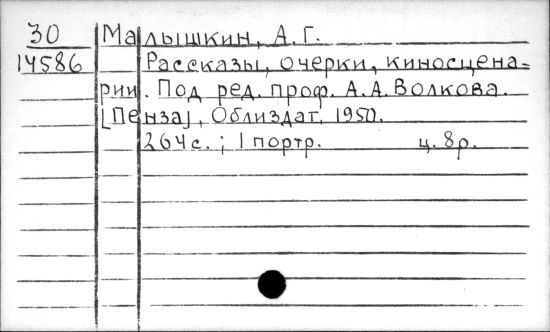 30 Малышкин, А. Г.
14586 Рассказы, очерки, киносцена-
рии. Под ред. проф. А. А. Волкова.
[Пенза], Облиздат, 1950.
264 с.; 1 портр. ц. 8р.